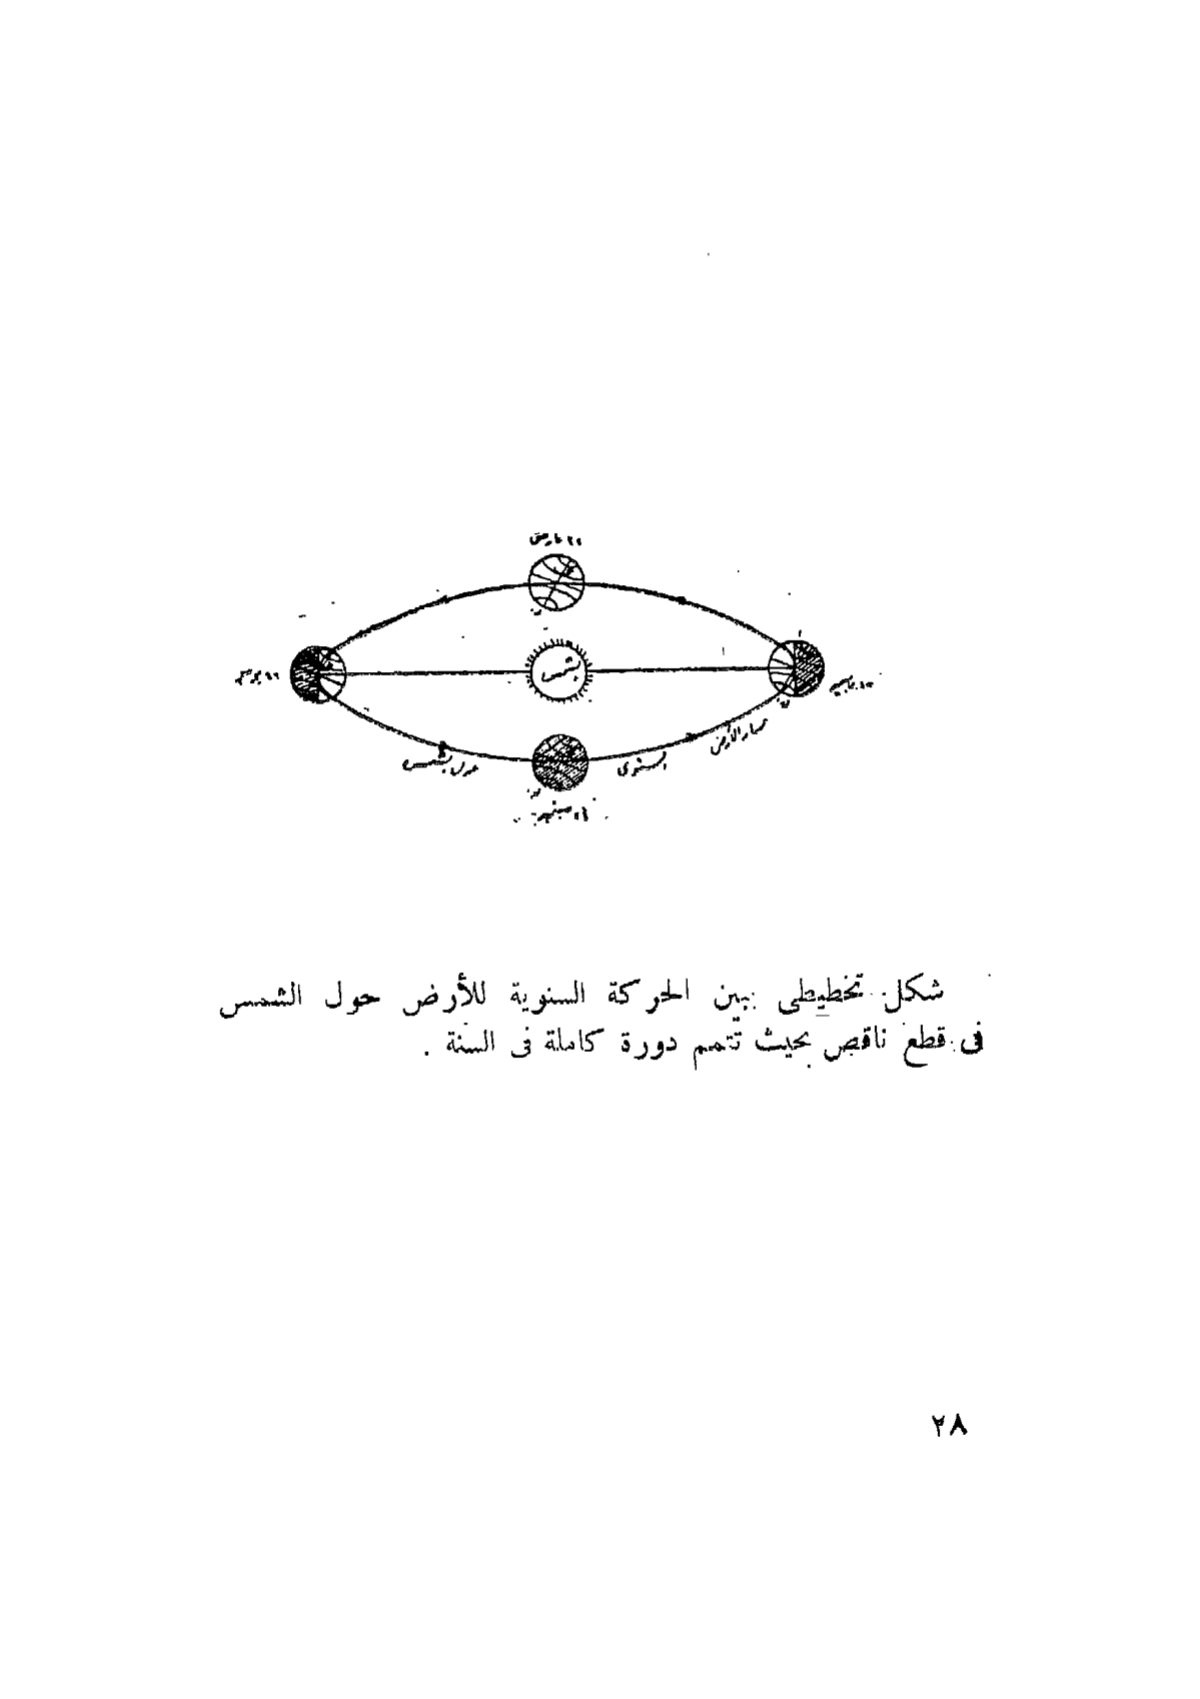 مارس
الشمس
مسار الأرض
السنوى
حول الشمس
سبتمبر
شكل تخطيطى يبين الحركة السنوية للأرض حول الشمس
فى قطع ناقص بحيث تتمم دورة كاملة فى السنة .
٢٨